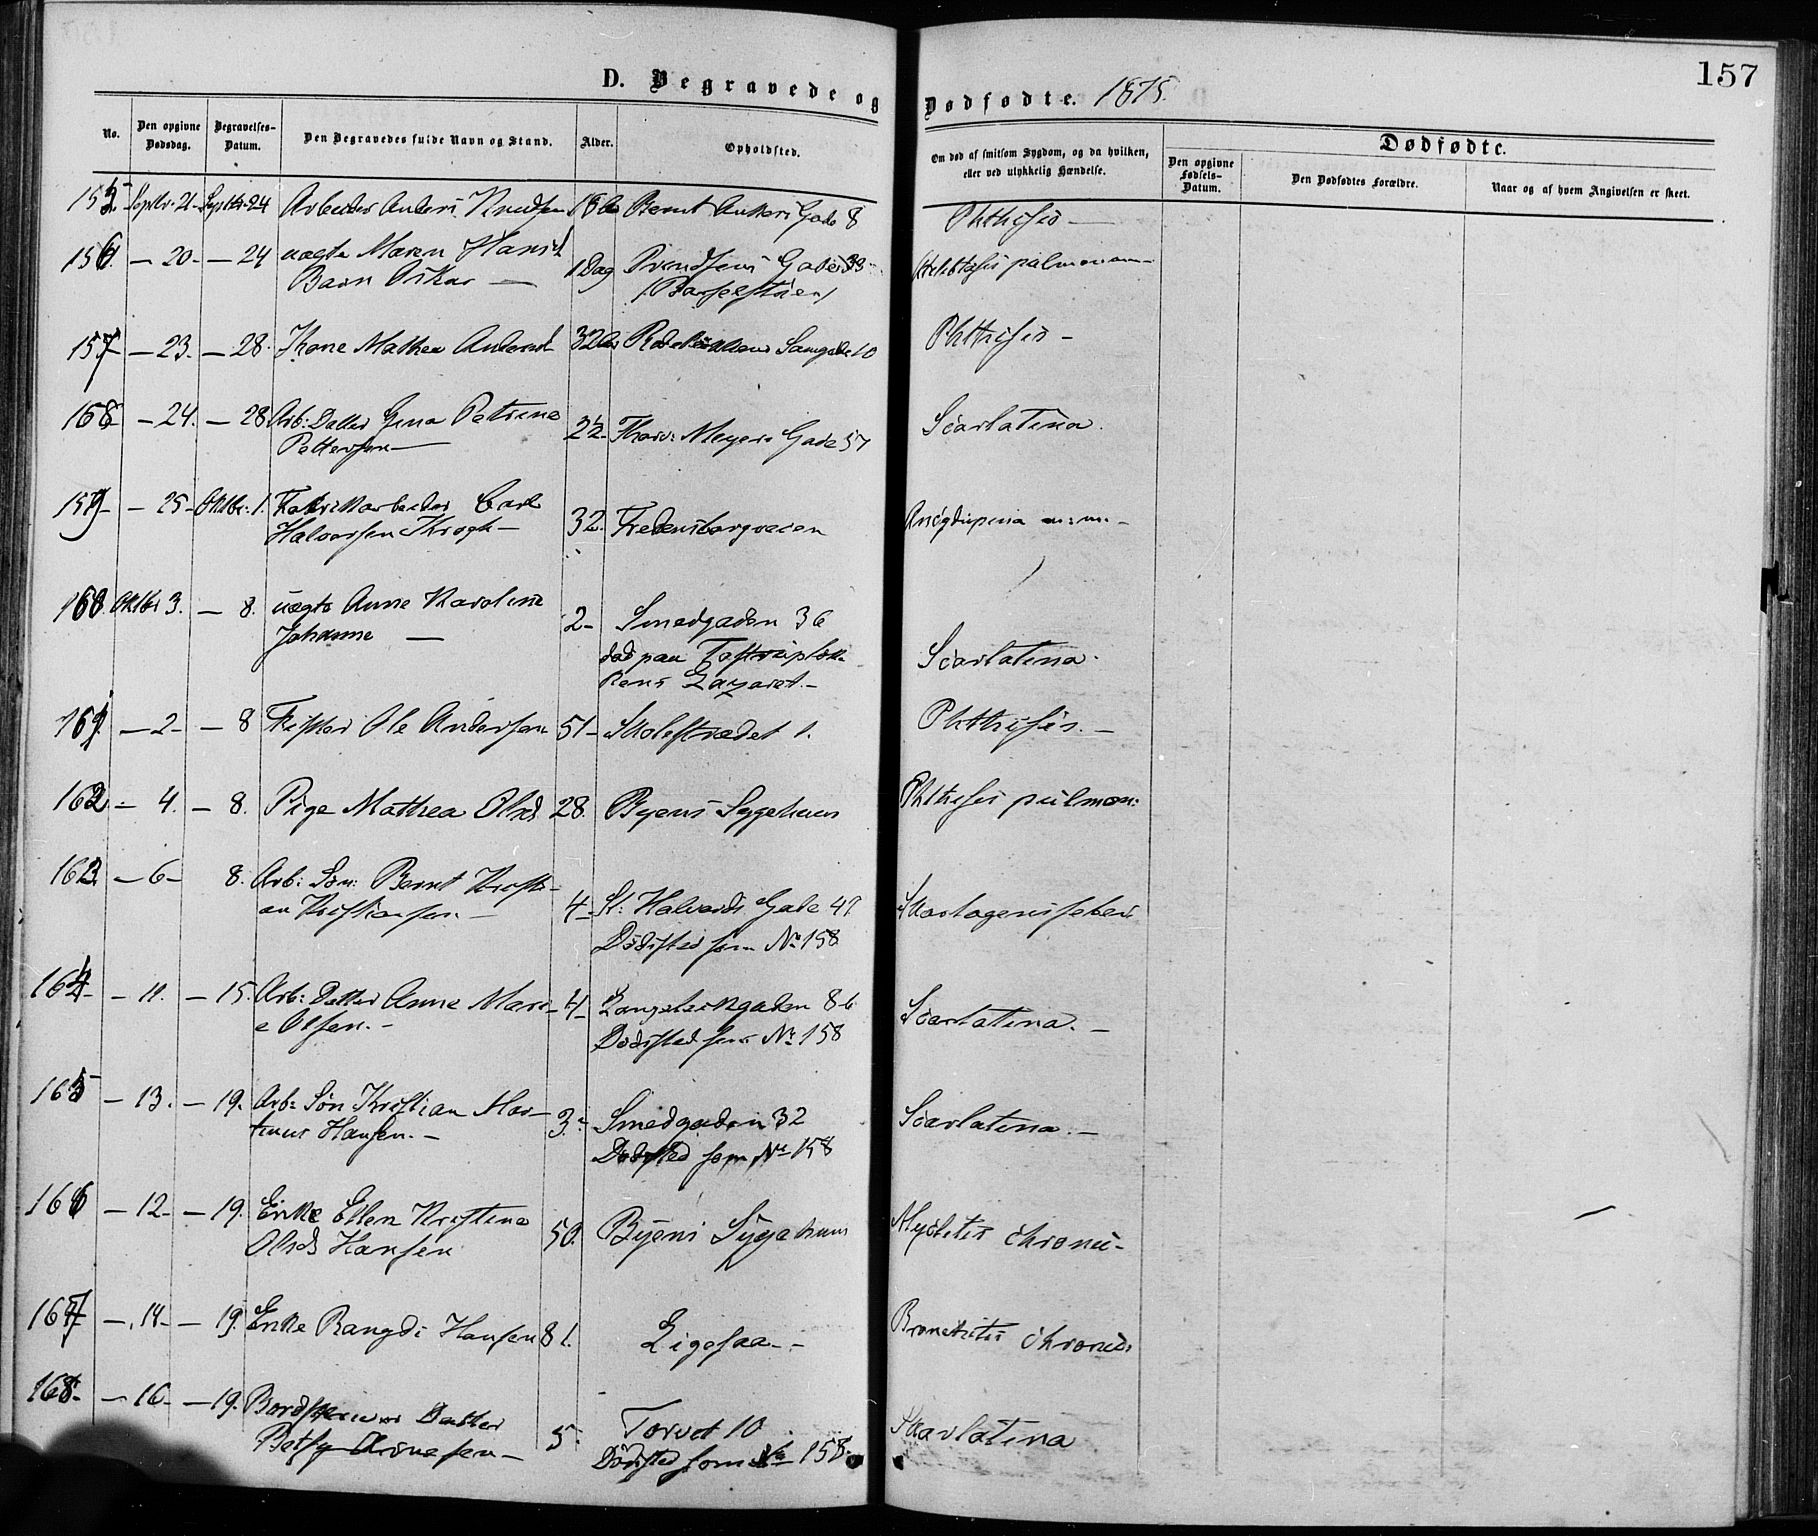 157
D. Begravede og Dødfødte. 1875.
No.
Den opgivne Dødsdag.
Begravelses-Datum.
Den Begravedes fulde Navn og Stand.
Alder.
Opholdsted.
Om død af smitsom Sygdom, og da hvilken, eller ved ulykkelig Hændelse.
Dødfødte.
Den opgivne Fødsels-Datum.
Den Dødfødtes Forældre.
Naar og af hvem Angivelsen er skeet.
155 Septbr. 21 Septbr. 24 Arbeider Anders Knudsen Bernt Ankers Gade 8 Phthisis —
156. — 20 — 24 uægte Maren Hansd. 1 Dag Svendsens Gade 33 pulmonum —
Barn Oskar — (Barselstuen)
157 — 23. — 28. Kone Mathea Andersd. 32 10 Phthisis —
158 — 24. — 28 Arb: Datter Gina Petrine Thorv: Meyers Gade 57 Scarlatina.
Pettersen —
159 — 25 — Oktbr: 1. Fabrikarbeider Carl 32. Fredensborgveien
Halvorsen Krogh —
160. Oktbr 3. — 8. uægte Anne Karoline 2 — Smedgaden 36
Johanne — død paa Tøftesløkkens Lazaret. — Scarlatina.
161. — 2 — — 8 Fisker Ole Andersen 51 — Skolestrædet 1. Phthisis. —
162 — 4. — 8. Pige Mathea Olsd. 28. Byens Sygehuus Phthisis pulmon:
163. — 6 — 8. Arb: Søn: Bernt Kristi-
an Kristiansen. — 4 — St: Halvards Gade 49 Skarlagensfeber
Dødsted som No 158
164 — 11. — 15. Arb: Datter Anne Mari-
e Olsen. — 4 — 86 Scarlatina. —
Dødsted som No 158
165 — 13. — 19. Arb: Søn Kristian Mar-
tinus Hansen. — 3. Smedgaden 32 Scarlatina. —
Dødsted som No 158
166 — 12 — — 19. Enke Ellen Kristine 50. Byens Sygehuus Myelitis chronic —
Olsd. Hansen
167 — 14 — — 19. Enke Rangdi Hansen 81. Ligesaa — Bronchitis chronic:
168. — 16 — — 19. Datter 5. Torvet 10 Skarlatina
Betsy Arnesen — Dødsted som No 158